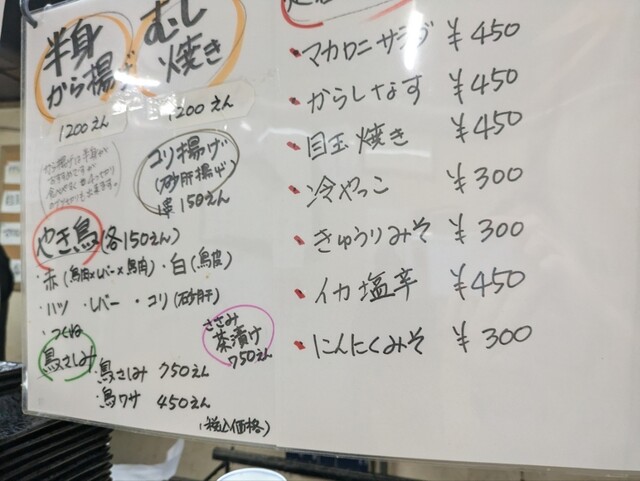 半身
から揚げ
1200えん
むし
焼き
1200えん
コリ揚げ
(砂肝揚げ)
1串150えん
やき鳥(各150えん)
・赤(鳥肉×レバー×鳥肉)・白(鳥皮)
・ハツ ・レバー ・コリ(砂肝)
・つくね
鳥さしみ
鳥さしみ 750えん
鳥ワサ 450えん
ささみ
茶漬け
750えん
(税込価格)
マカロニサラダ ¥450
からしなす ¥450
目玉焼き ¥450
冷やっこ ¥300
きゅうりみそ ¥300
イカ塩辛 ¥450
にんにくみそ ¥300